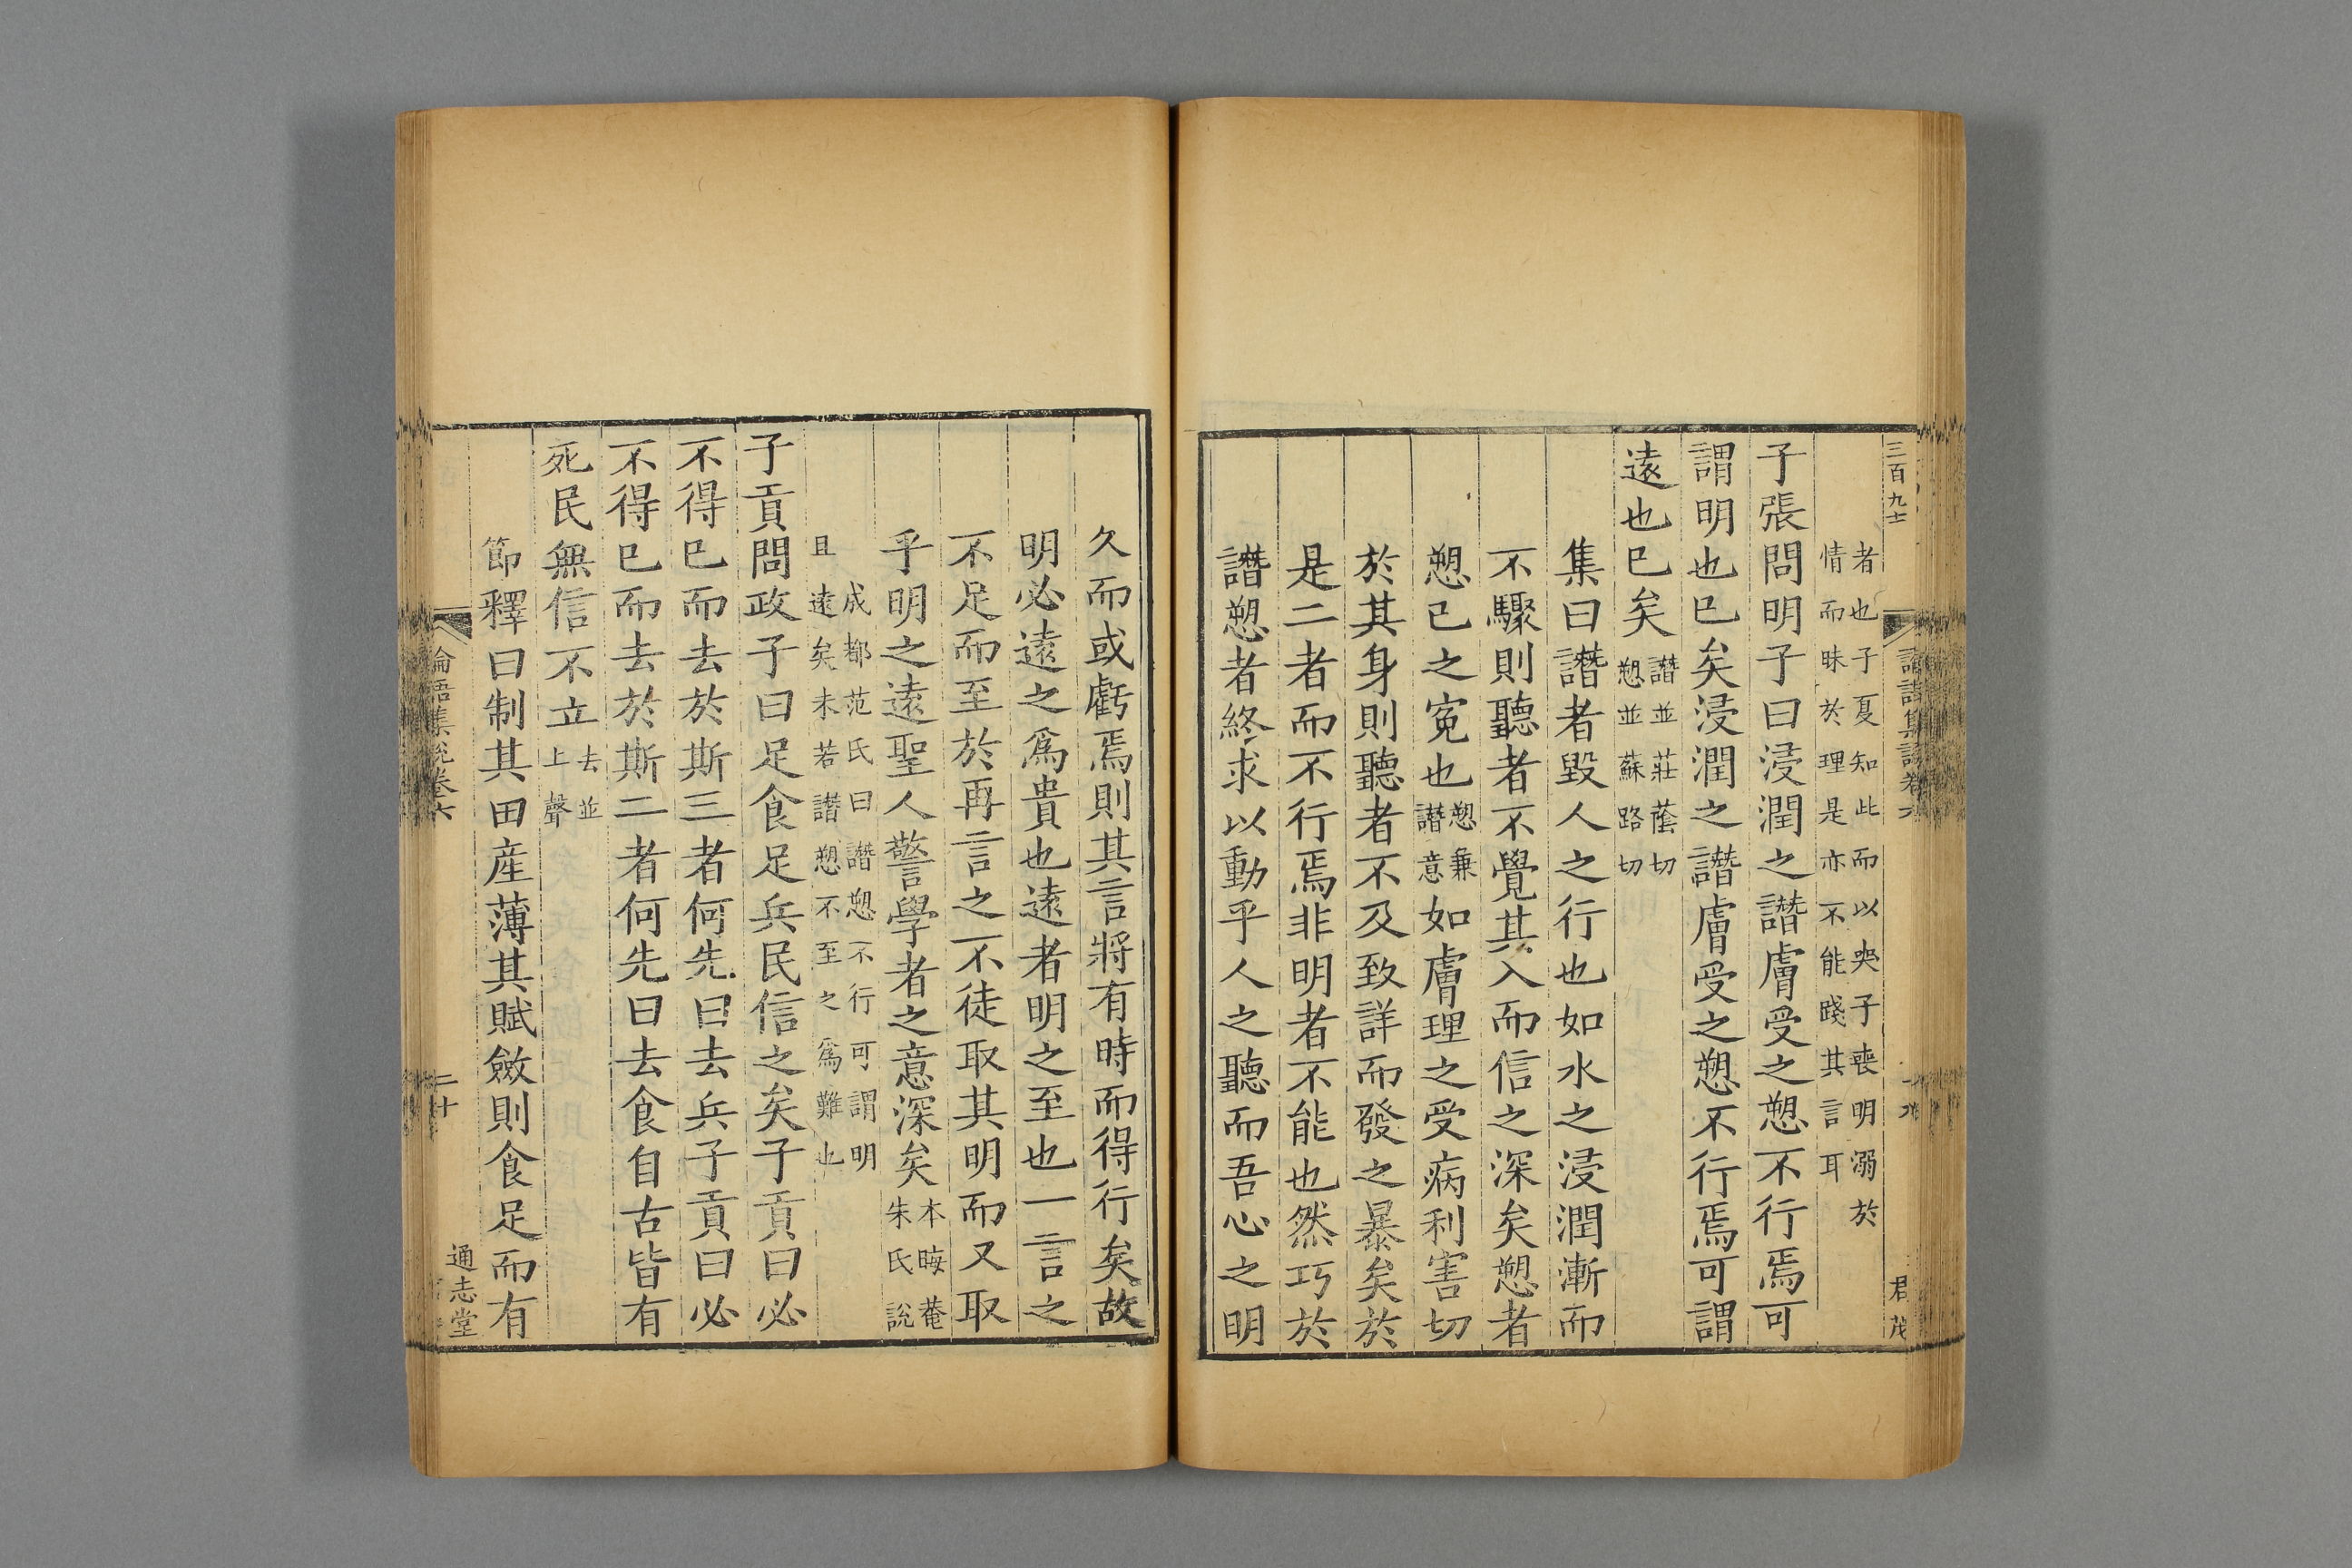 三百九士
論語集說卷六
十九
君茂
者也子夏知此而以哭子喪明溺於
情而昧於理是亦不能踐其言耳
子張問明子曰浸潤之譖膚受之愬不行焉可
謂明也已矣浸潤之譖膚受之愬不行焉可謂
遠也已矣譖並莊蔭切愬並蘇路切
集曰譖者毀人之行也如水之浸潤漸而
不驟則聽者不覺其入而信之深矣愬者
愬已之寃也愬兼譖意如膚理之受病利害切
於其身則聽者不及致詳而發之暴矣於
是二者而不行焉非明者不能也然巧於
譖愬者終求以動乎人之聽而吾心之明
久而或虧焉則其言將有時而得行矣故
明必遠之爲貴也遠者明之至也一言之
不足而至於再言之不徒取其明而又取
乎明之遠聖人警學者之意深矣本晦菴朱氏說
成都范氏曰譖愬不行可謂明
且遠矣未若譖愬不至之爲難也
子貢問政子曰足食足兵民信之矣子貢曰必
不得已而去於斯三者何先曰去兵子貢曰必
不得已而去於斯二者何先曰去食自古皆有
死民無信不立去並上聲
節釋曰制其田産薄其賦斂則食足而有
論語集說卷六
二十
通志堂